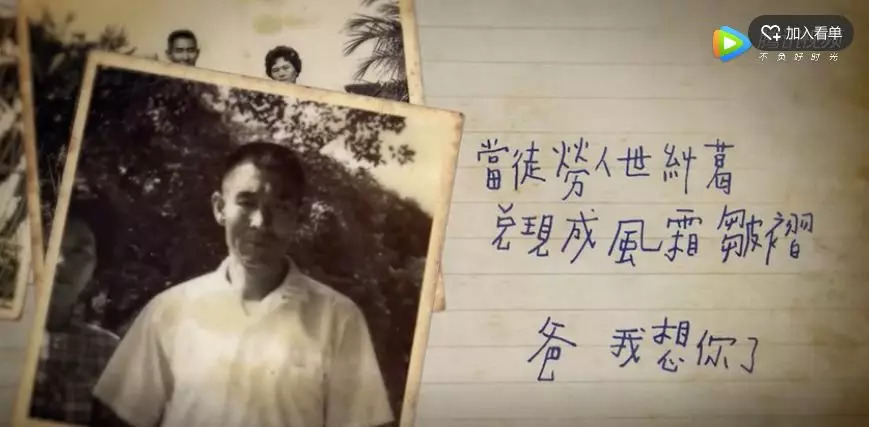 加入看单
不负好时光
當徒勞人世糾葛
兌現成風霜皺褶
爸 我想你了